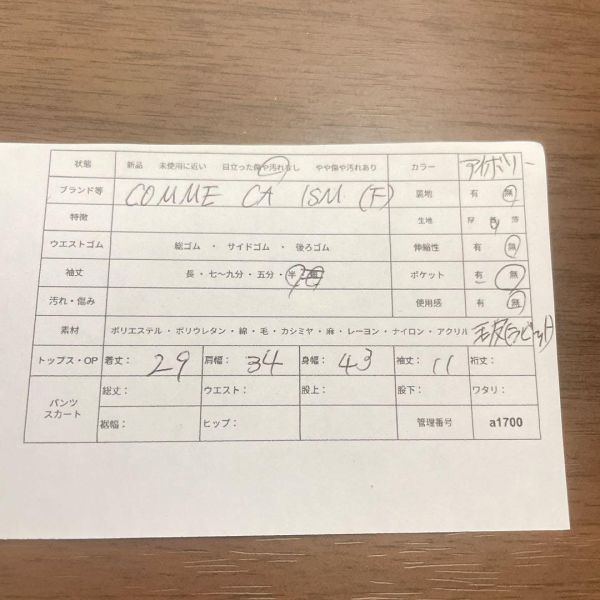 状態 新品 未使用に近い 目立った傷や汚れなし やや傷や汚れあり カラー アイボリー
ブランド等 COMME CA ISM (F) 裏地 有 無
特徴 生地 厚 普 薄
ウエストゴム 総ゴム ・ サイドゴム ・ 後ろゴム 伸縮性 有 無
袖丈 長・七〜九分・五分・半・無 ポケット 有 無
汚れ・傷み 使用感 有 無
素材 ポリエステル・ポリウレタン・綿・毛・カシミヤ・麻・レーヨン・ナイロン・アクリル 毛皮(ラビット)
トップス・OP 着丈: 29 肩幅: 34 身幅: 43 袖丈: 11 裄丈:
パンツ スカート 総丈: ウエスト: 股上: 股下: ワタリ:
裾幅: ヒップ: 管理番号 a1700